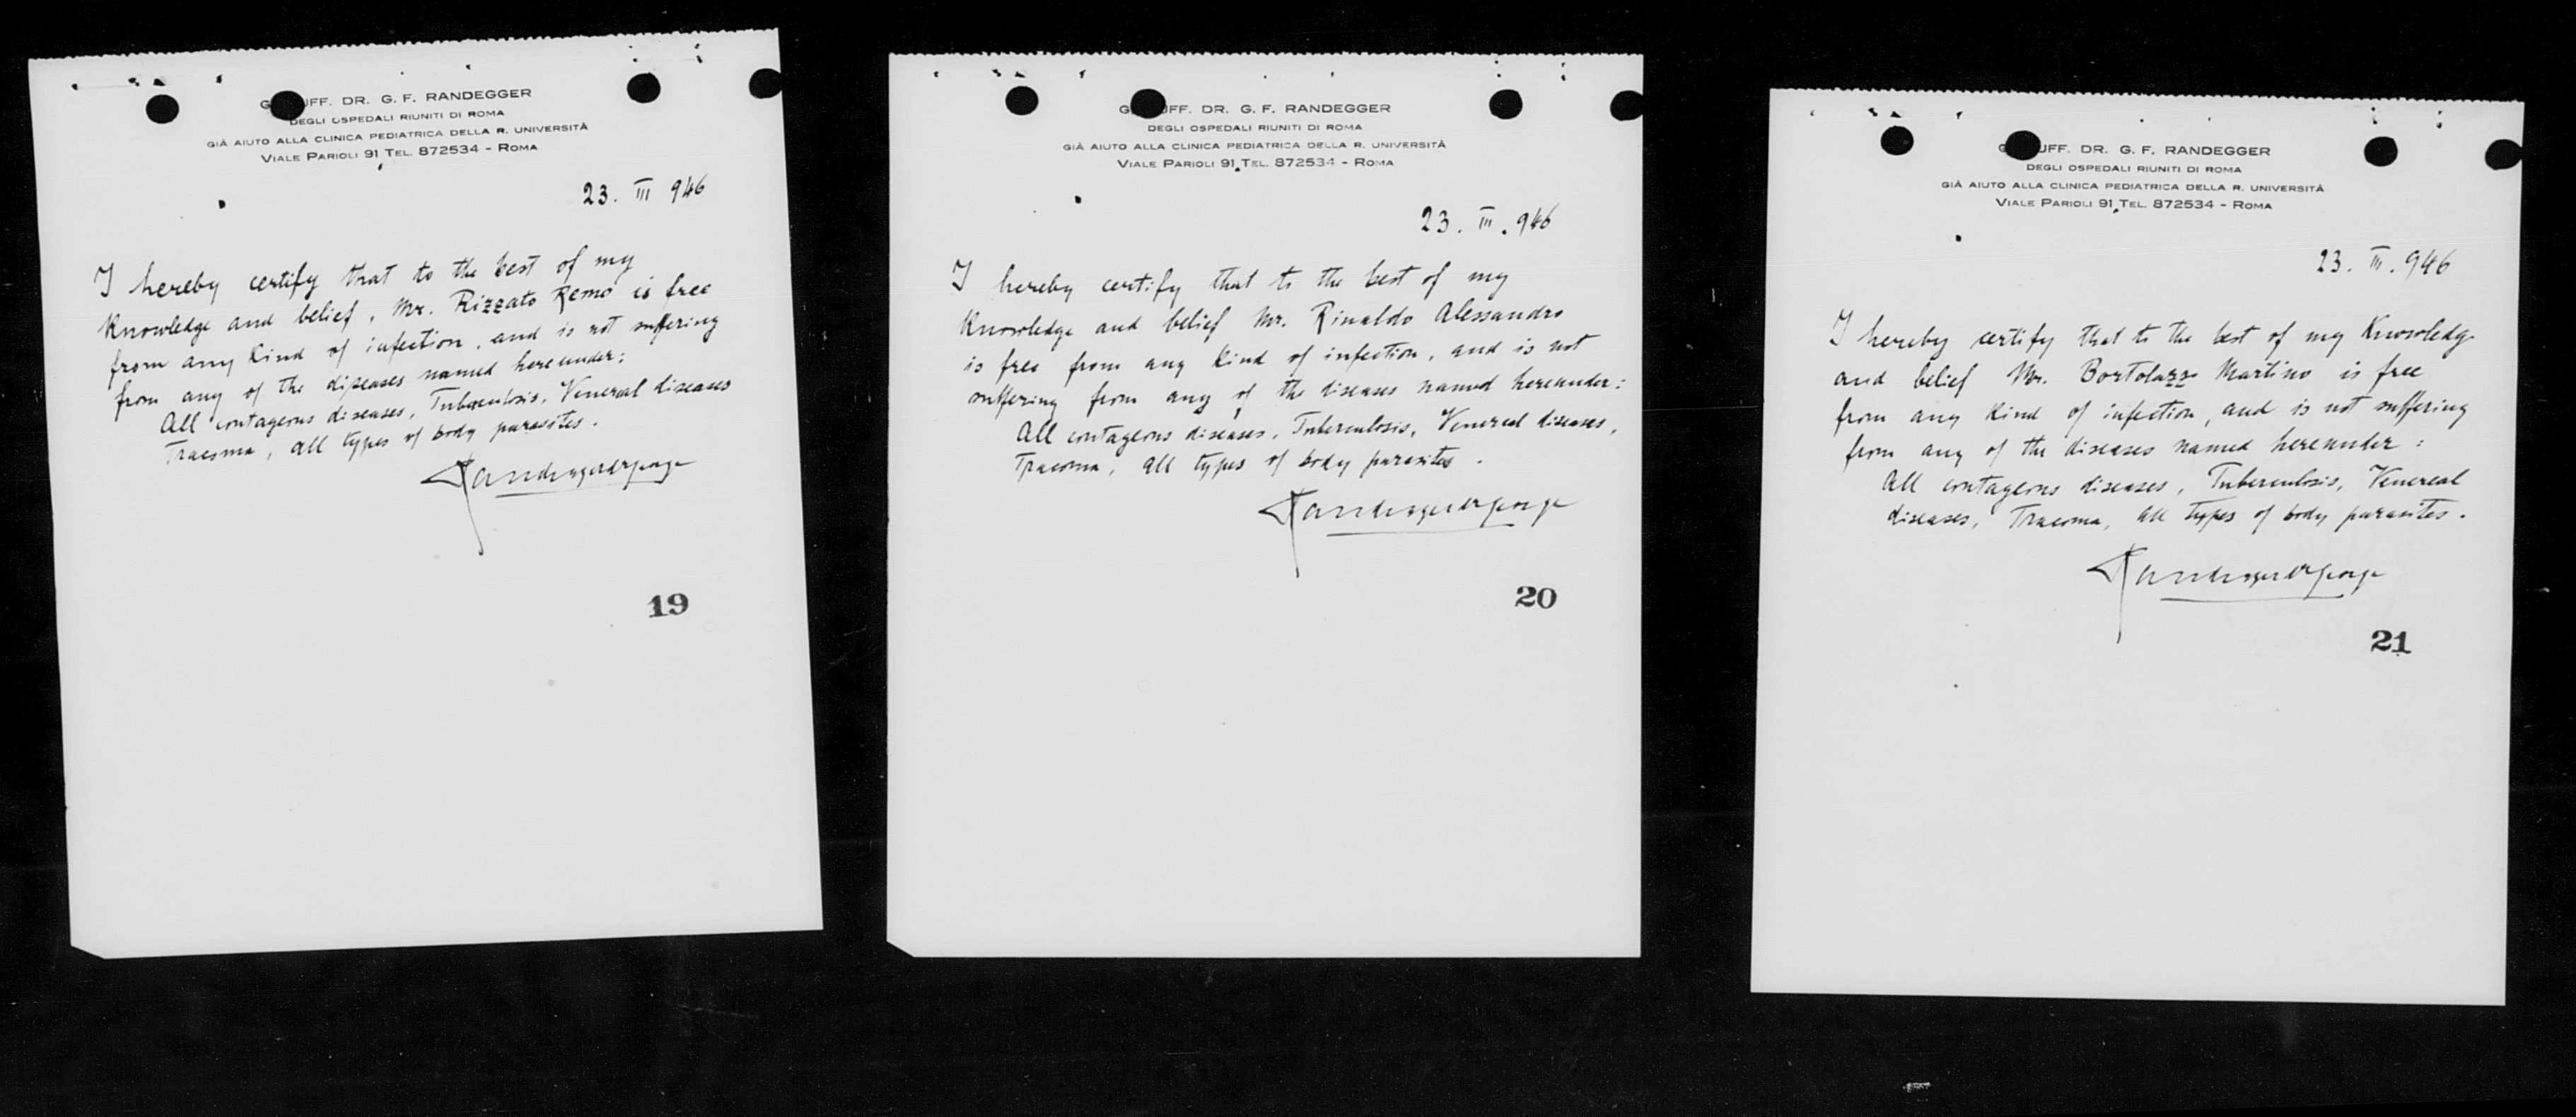 UFF. DR. G. F. RANDEGGER
DEGLI OSPEDALI RIUNITI DI ROMA
GIÀ AIUTO ALLA CLINICA PEDIATRICA DELLA R. UNIVERSITÀ
VIALE PARIOLI 91 TEL. 872534 - ROMA
23. III 946
I hereby certify that to the best of my
Knowledge and belief, Mr. Rizzato Remo is free
from any kind of infection, and is not suffering
from any of the diseases named hereunder:
All contageous diseases, Tuberculosis, Venereal diseases
Tracoma, all types of body parasites.
19
UFF. DR. G. F. RANDEGGER
DEGLI OSPEDALI RIUNITI DI ROMA
GIÀ AIUTO ALLA CLINICA PEDIATRICA DELLA R. UNIVERSITÀ
VIALE PARIOLI 91 TEL. 872534 - ROMA
23. III. 946
I hereby certify that to the best of my
Knowledge and belief Mr. Rinaldo Alessandro
is free from any kind of infection, and is not
suffering from any of the diseases named hereunder:
All contageous diseases, Tuberculosis, Venereal diseases,
Tracoma, all types of body parasites.
20
UFF. DR. G. F. RANDEGGER
DEGLI OSPEDALI RIUNITI DI ROMA
GIÀ AIUTO ALLA CLINICA PEDIATRICA DELLA R. UNIVERSITÀ
VIALE PARIOLI 91 TEL. 872534 - ROMA
23. III. 946
I hereby certify that to the best of my Knowledge
and belief Mr. Martino is free
from any kind of infection, and is not suffering
from any of the diseases named hereunder:
All contageous diseases, Tuberculosis, Venereal
diseases, Tracoma, all types of body parasites.
21